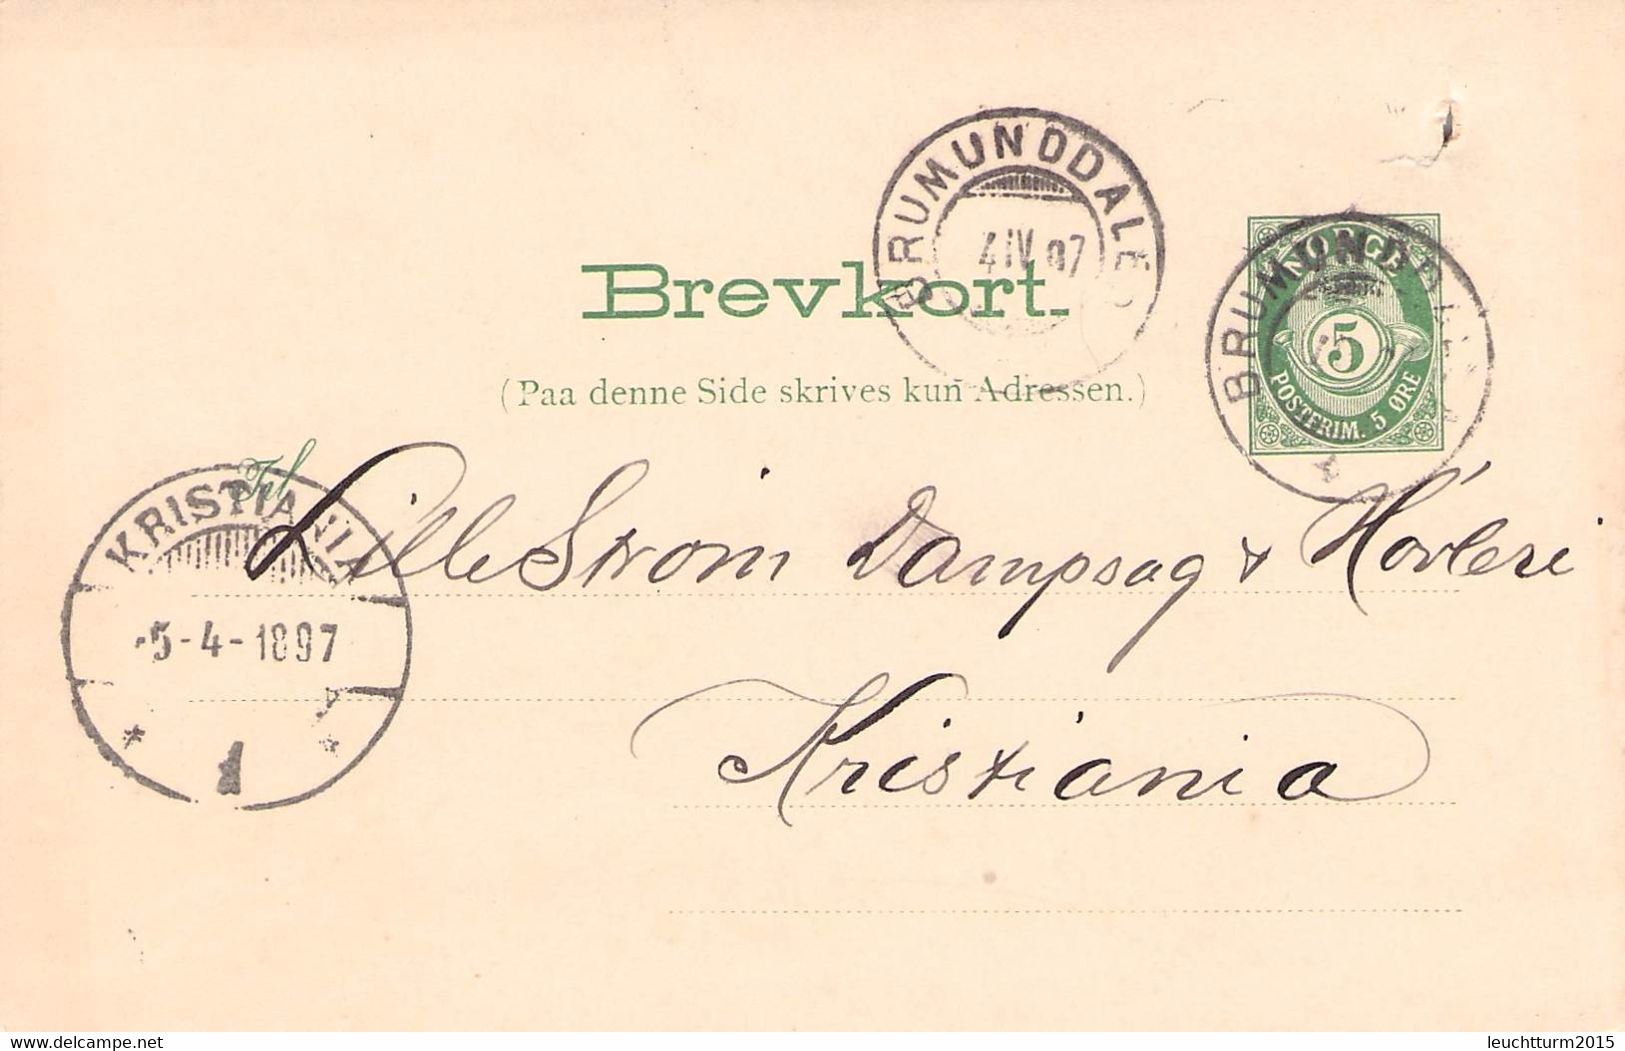 BRUMUNDDALEN
4 IV 97
NORGE
5
POSTFRIM. 5 ØRE
BRUMUNDDALEN
Brevkort.
(Paa denne Side skrives kun Adressen.)
Til
KRISTIANIA
-5-4-1897
1
LilleStrøm Dampsag & Høvleri
Kristiania
delcampe.net
leuchtturm2015